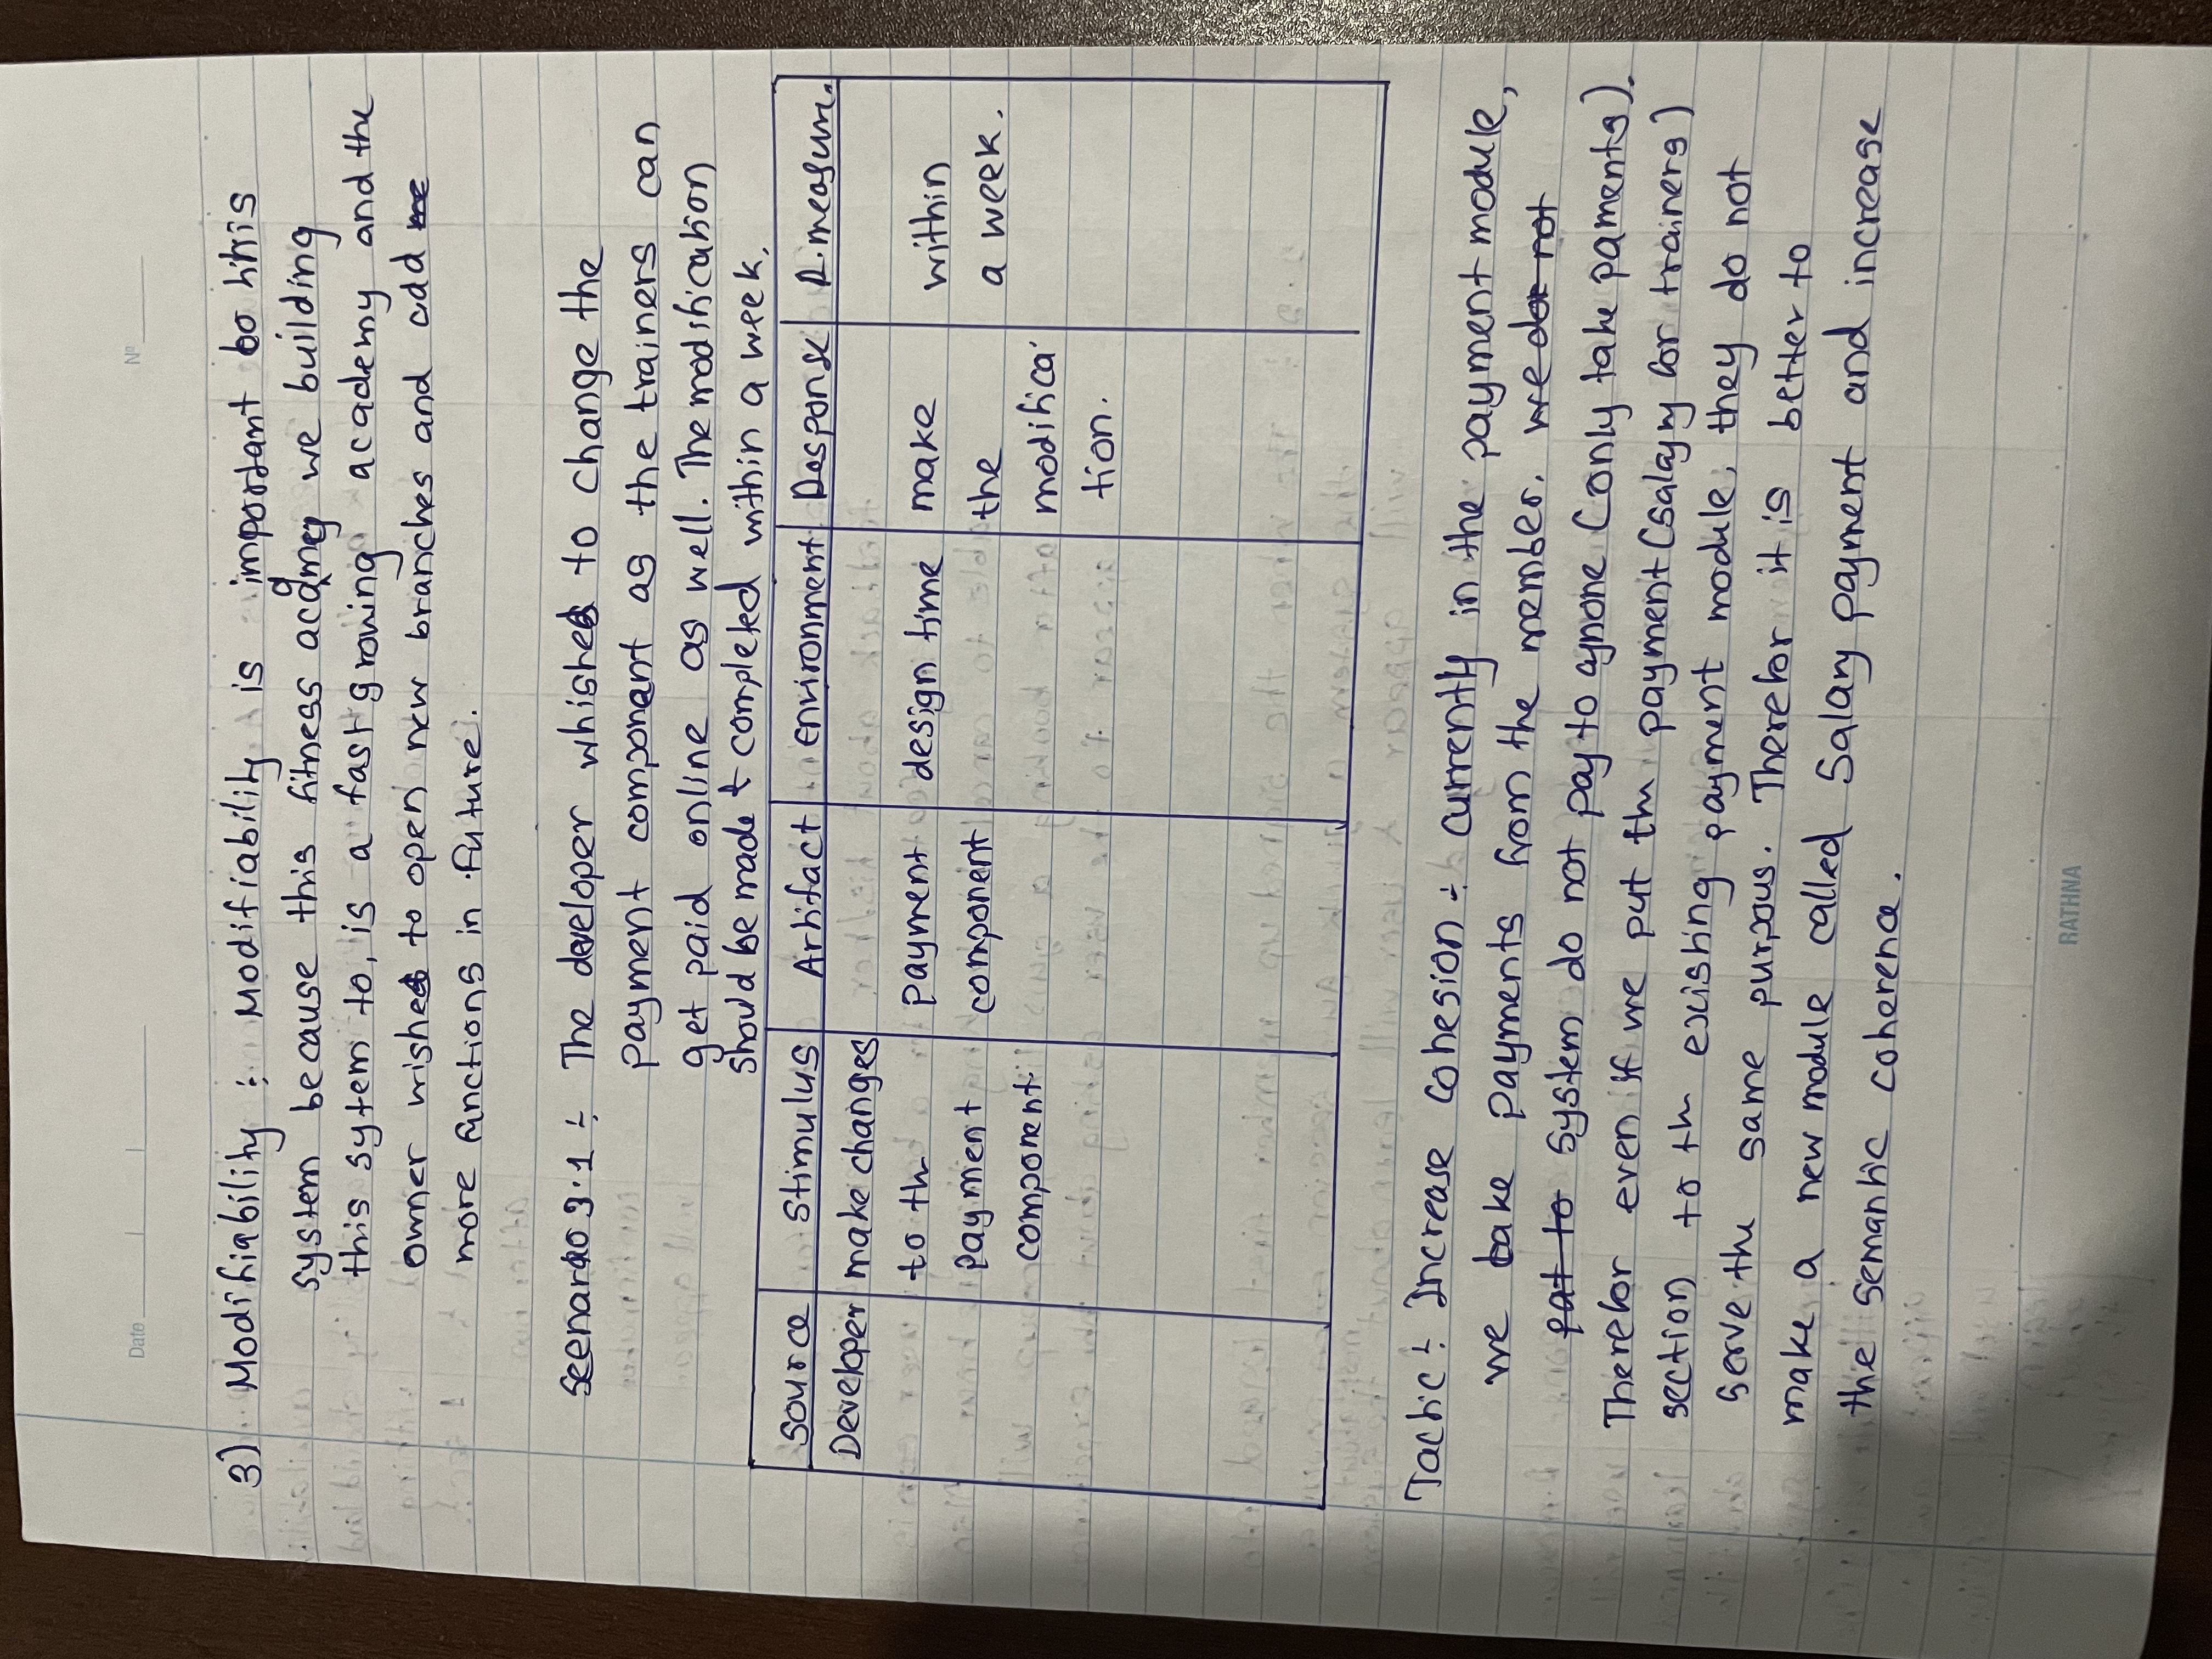 Date
Nº
3) Modifiability : Modifiability is important to this
system because this fitness acadmey we building
this sytem to, is a fast growing academy and the
owner wishes to open new branches and add me
more functions in future.
Scenario 3.1 : The developer whishes to change the
payment component as the trainers can
get paid online as well. The modification
should be made & completed within a week.
Source Stimulus Artifact Environment Response R.measure.
Developer make changes
to th payment design time make within
payment component the a week.
component. modifica
tion.
Tactic : Increase cohesion : currently in the payment module,
we take payments from the member. we do not
pat to system do not pay to aynone (only take paments).
Therefor even if we put th payment (salary for trainers)
section to th existing payment module, they do not
serve the same purpous. Therefor it is better to
make a new module called Salary payment and increase
the semantic coherence.
RATHNA